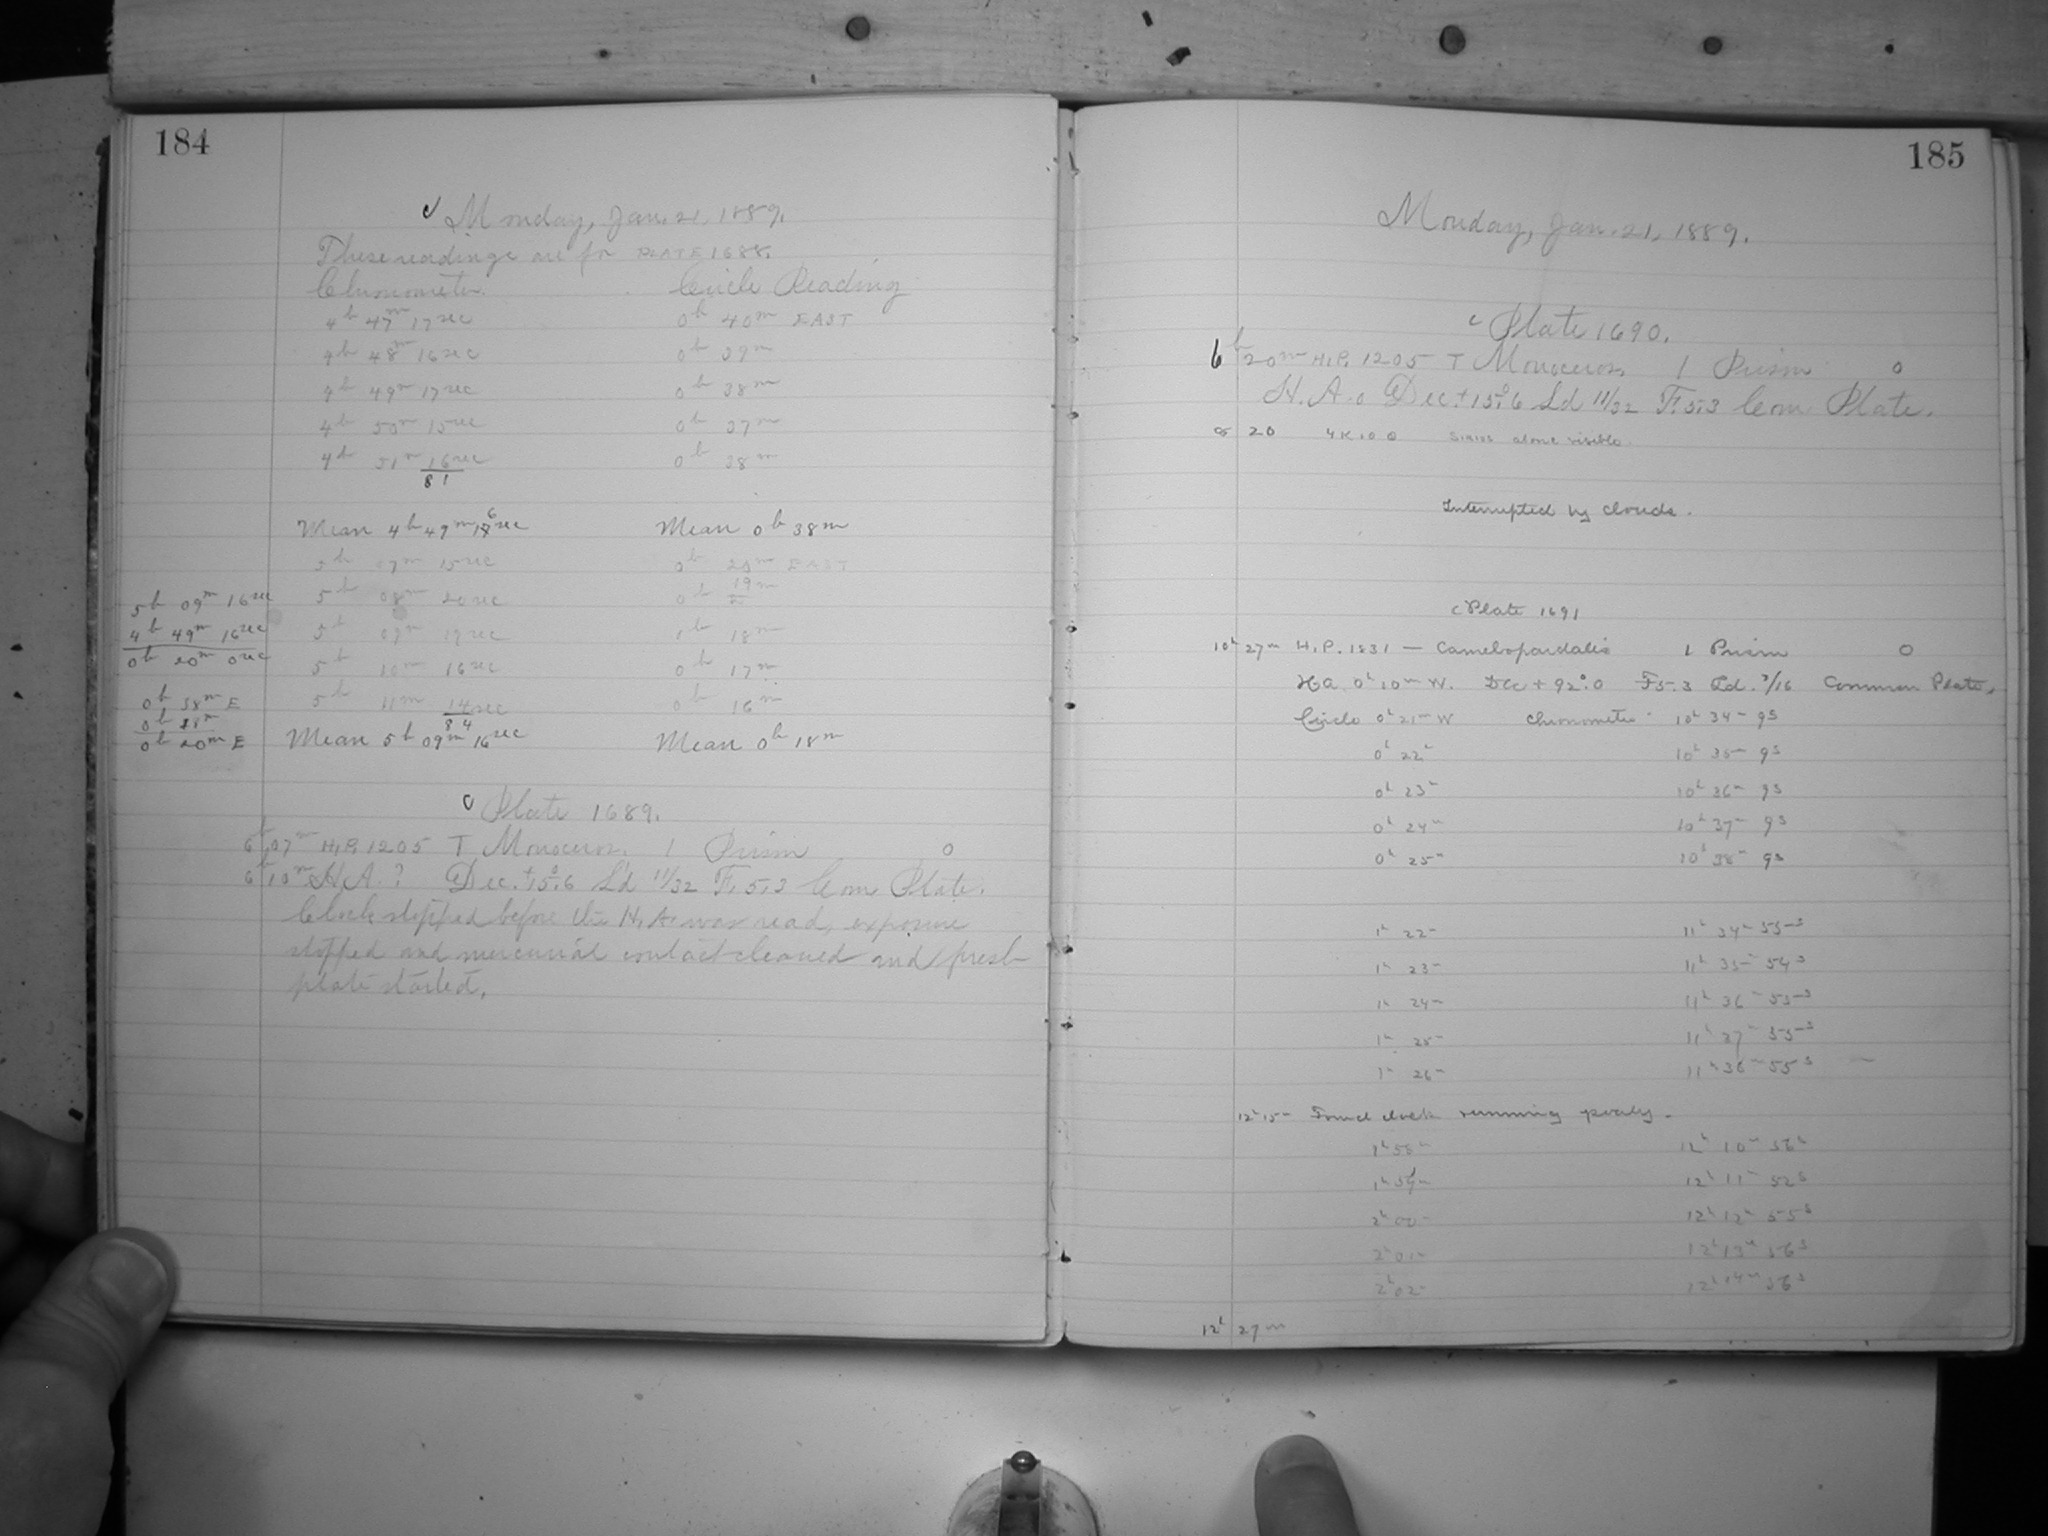 184
Monday, Jan. 21, 1889.
These readings are for PLATE 1688.
Chronometer. Circle Reading
4h 47m 17sec 0h 40m EAST
4h 48m 16sec 0h 39m
4h 49m 17sec 0h 38m
4h 50m 15sec 0h 37m
4h 51m 16sec 0h 38m
81
Mean 4h 49m 16sec Mean 0h 38m
5h 07m 15sec 0h 20m EAST
5h 08m 20sec 0h 19m
5h 09m 19sec 18m
5h 10m 16sec 0h 17m
5h 11m 14sec 0h 16m
84
Mean 5h 09m 16sec Mean 0h 18m
5h 09m 16sec
4h 49m 16sec
0h 20m 0sec
0h 38m E
0h
0h 20m E
Plate 1689.
6h 07m H.P. 1205 T Monoceros. 1 Prism 0
6h 10m H.A. ? Dec. +15°.6 Ld 11/32 F. 5.3 Com. Plate.
Clock stopped before the H.A. was read, exposure
stopped and mercurial contact cleaned and fresh
plate started.
185
Monday, Jan. 21, 1889.
Plate 1690.
6h 20m H.P. 1205 T Monoceros. 1 Prism 0
H.A. 0 Dec. +15°.6 Ld 11/32 F. 5.3 Com. Plate.
8 20 Sirius alone visible.
Interrupted by clouds.
Plate 1691
10h 27m H.P. 1831 — Camelopardalis 1 Prism 0
Ha 0h 10m W. Dec + 92°.0 F5.3 Ld. /16 Common Plate,
Circle 0h 21m W Chronometer 10h 34m 9s
0h 22m 10h 35m 9s
0h 23m 10h 36m 9s
0h 24m 10h 37m 9s
0h 25m 10h 38m 9s
1h 22m 11h 34m 55s
1h 23m 11h 35m 54s
1h 24m 11h 36m 55s
1h 25m 11h 37m 55s
1h 26m 11h 38m 55s
12h 15m Found clock running poorly.
1h 58m 12h 10m 56s
1h 59m 12h 11m 52s
2h 00m 12h 12m 55s
2h 01m 12h 13m 56s
2h 02m 12h 14m 56s
12h 27m